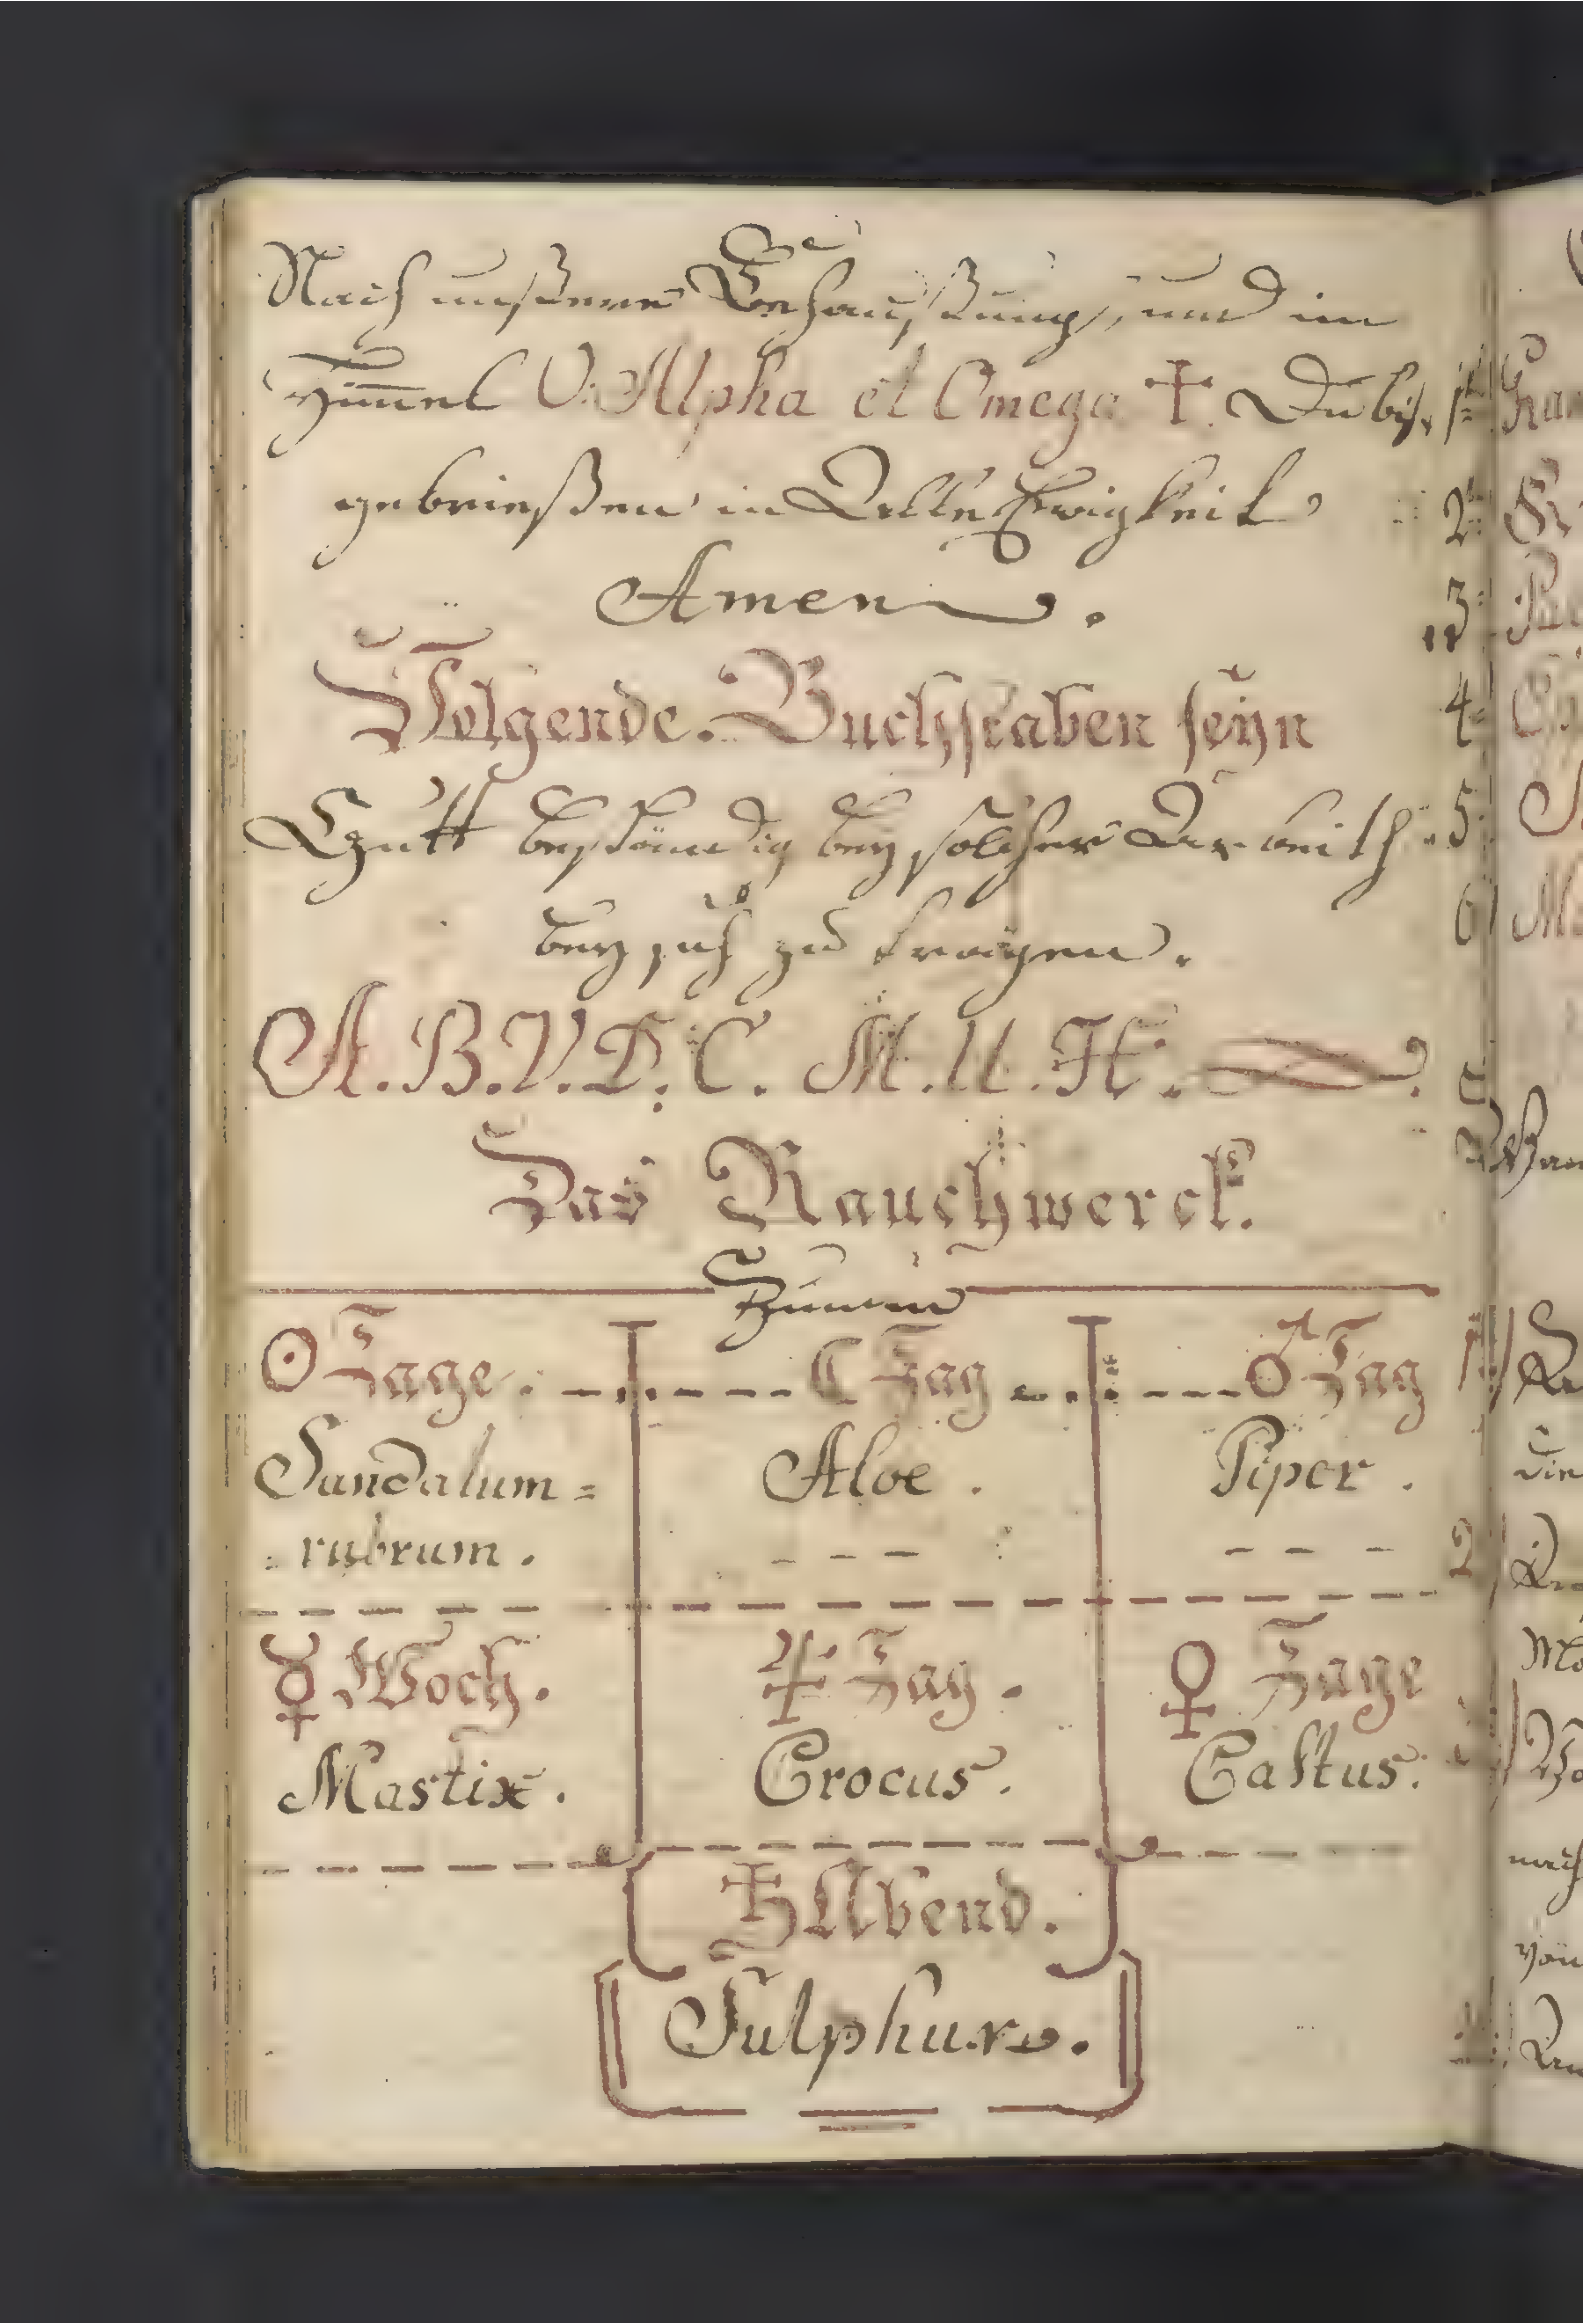 Nach unßerer Behaußung, und im
Himel O. Alpha et Omega ✝. Du bist
gebrießen in Alle Ewigkeit
Amen.
Folgende. Buchstaben seÿn
Gutt beständig beÿ solcher Arbeith
beÿ sich zu tragen.
A. B. V. D. C. M. U. H.
Das Rauchwerck.
☉ Tage. ☾ Tag ♂ Tag
Sandalum= Aloe. Piper.
=rubrum.
☿ Woch. ♃ Tag. ♀ Tage
Mastix. Crocus. Castus.
♄ Abend.
Sulphur.
1
2
3
4
5
6
1
2